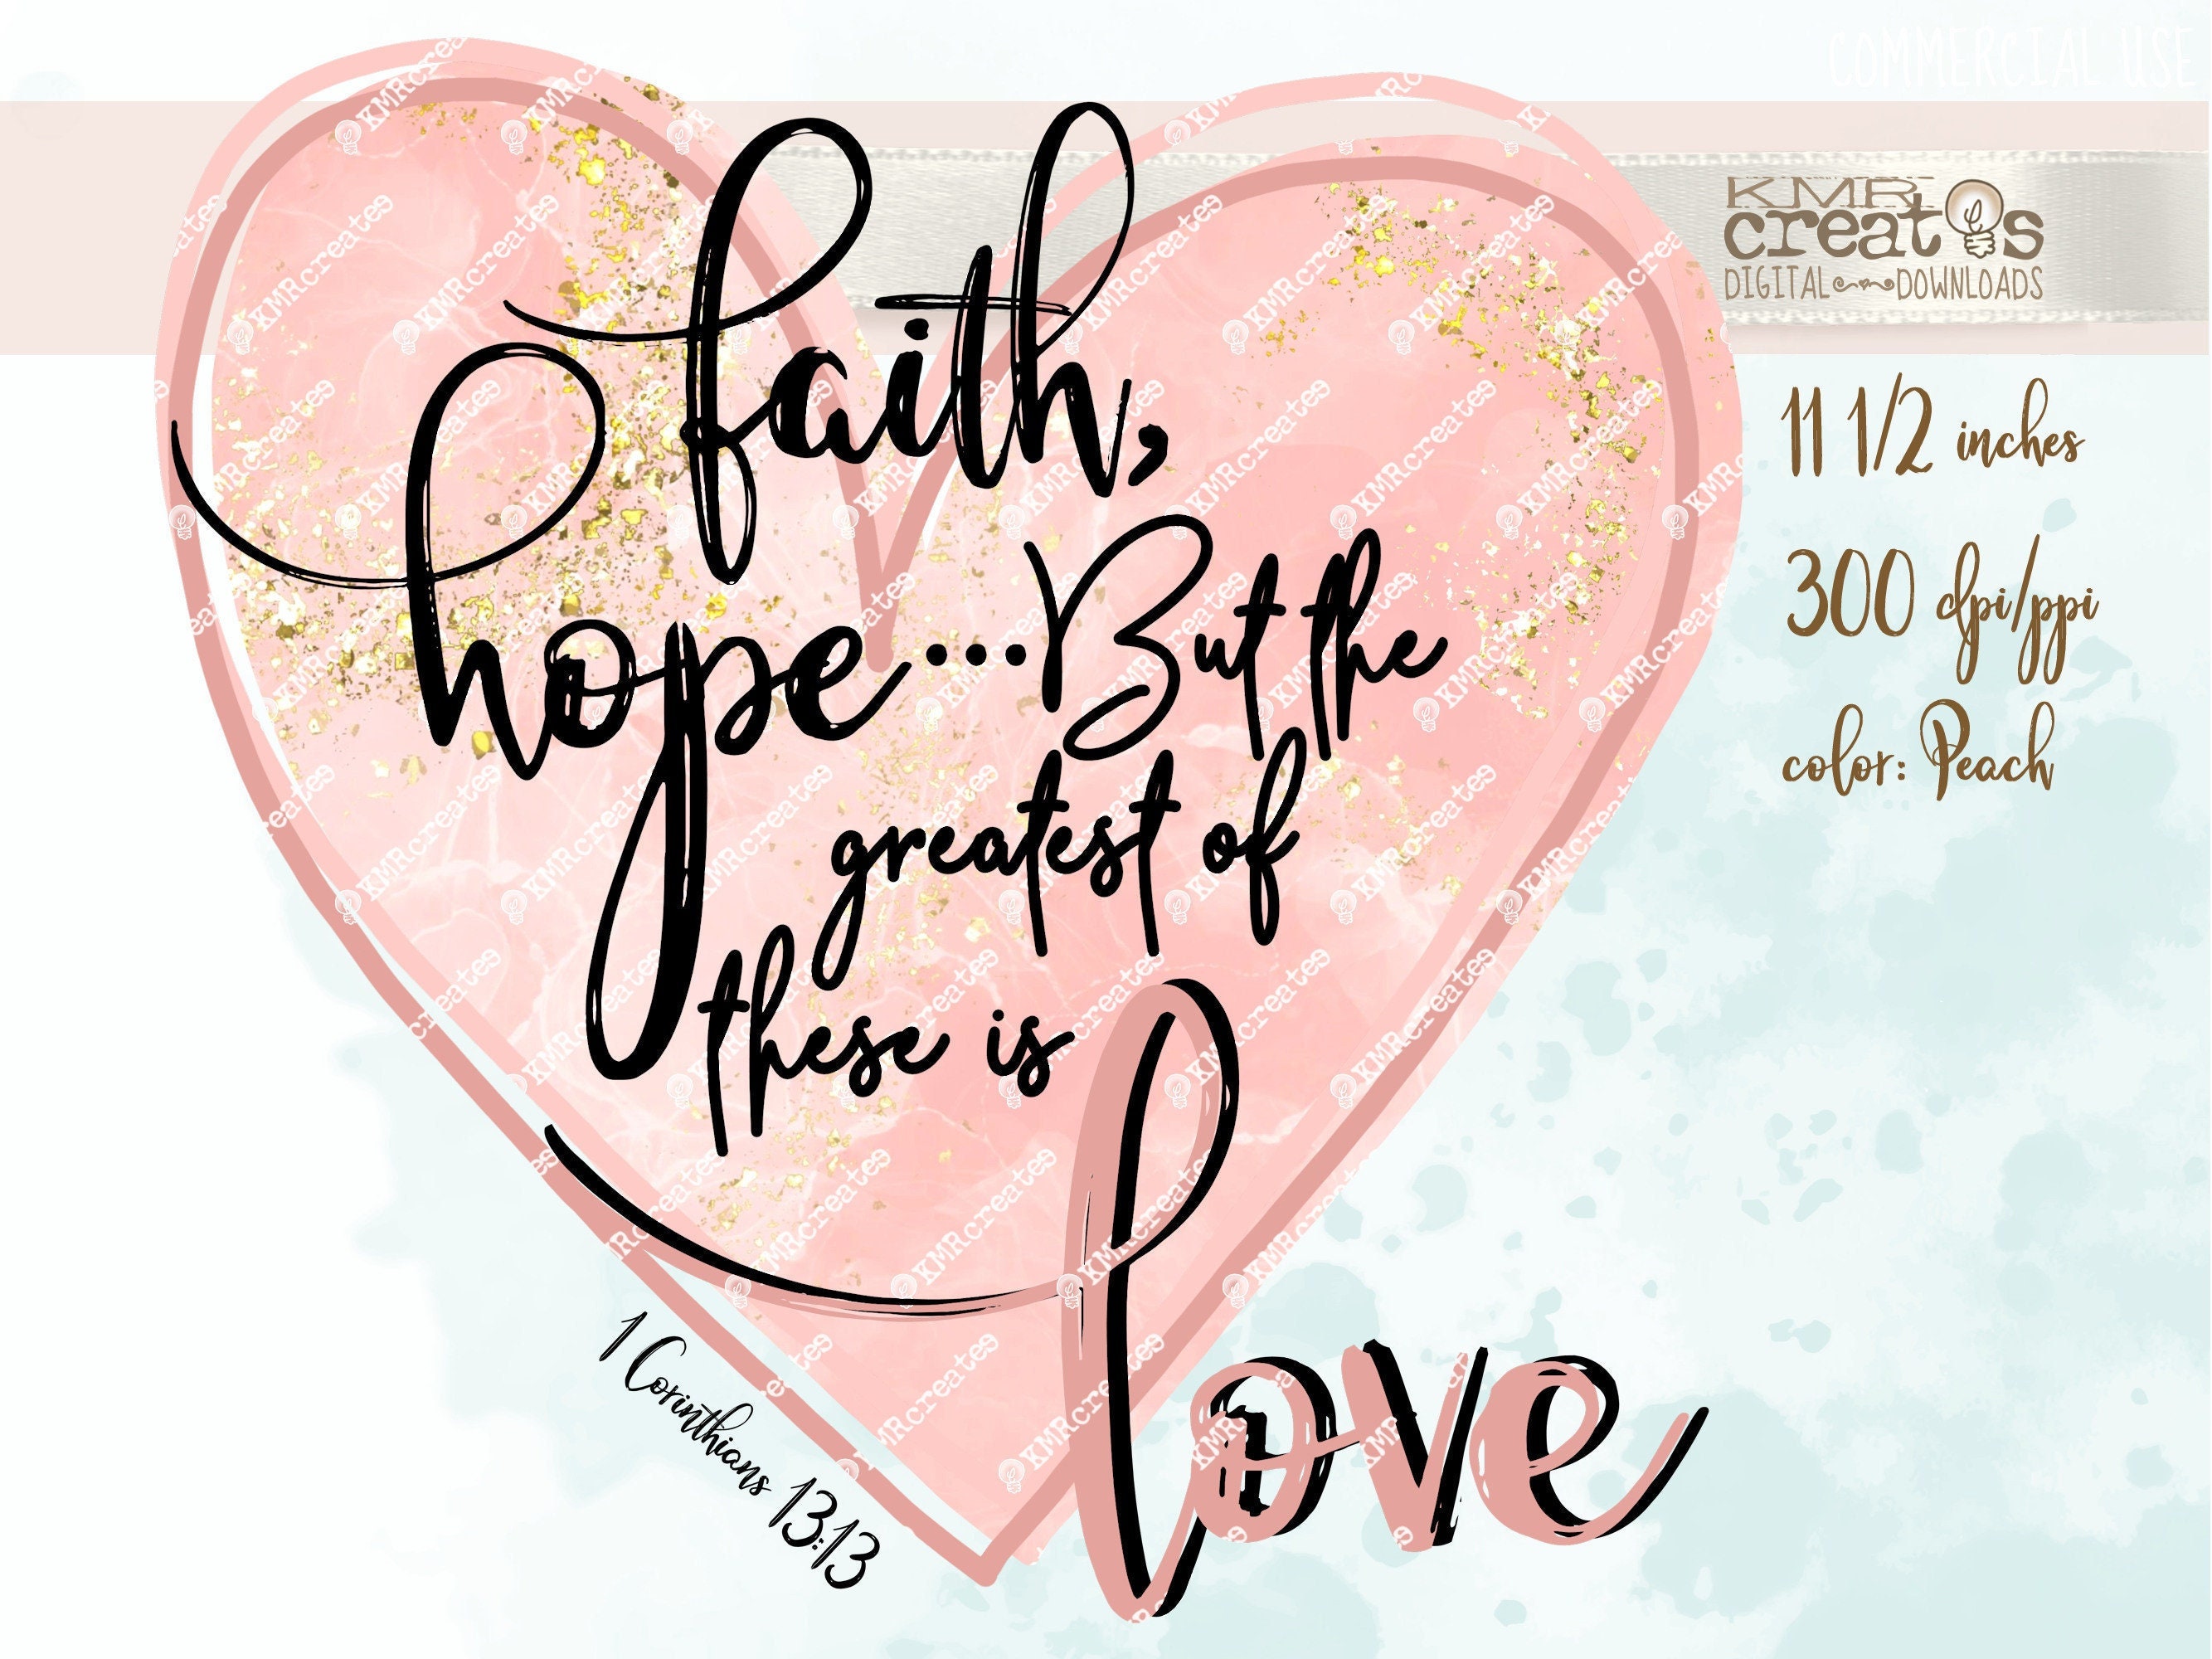 COMMERCIAL USE
KMR
creates
DIGITAL DOWNLOADS
11 1/2 inches
300 dpi/ppi
color: Peach
faith,
hope...But the
greatest of
these is
love
1 Corinthians 13:13
KMRcreates